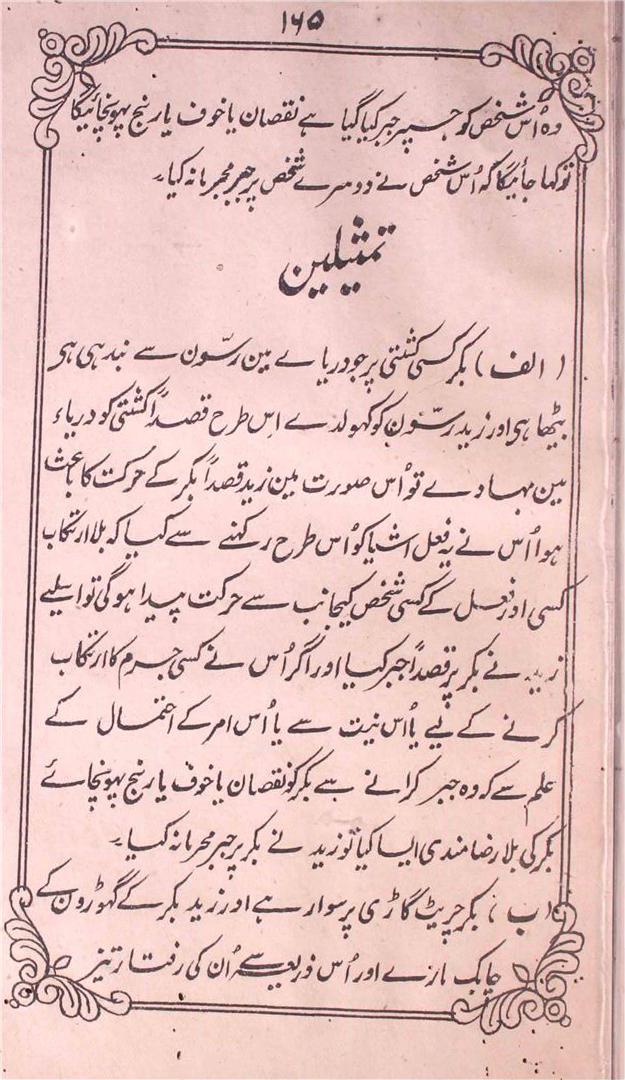 ۱۶۵
وہ اُس شخص کو جسپر جبر کیا گیا ہے نقصان یا خوف یا رنج پہونچائیگا
تو کہا جائیگا کہ اُس شخص نے دوسرے شخص پر جبر مجرمانہ کیا۔
تمثیلین
(الف) بکر کسی کشتی پر جو دریاے مین رسّون سے بندہی ہی
بیٹھا ہی اور زید رسّون کو کہولدے اِس طرح قصداً کشتی کو دریاء
مین بہادے تو اُس صورت مین زید قصداً بکر کے حرکت کا باعث
ہوا اُس نے یہ فعل اشیا کو اُس طرح رکہنے سے کیا کہ بلا ارتکاب
کسی اور فعل کے کسی شخص کیجانب سے حرکت پیدا ہوگی تو اسلیے
زید نے بکر پر قصداً جبر کیا اور اگر اُس نے کسی جرم کا ارتکاب
کرنے کے لیے یا اُس نیت سے یا اُس امر کے احتمال کے
علم سے کہ وہ جبر کرانے سے بکر کو نقصان یا خوف یا رنج پہونچائے
بکر کی بلا رضامندی ایسا کیا تو زید نے بکر پر جبر مجرمانہ کیا۔
(ب) بکر چریٹ گاڑی پر سوار ہے اور زید بکر کے گہوڑون کے
چابک مارے اور اُس ذریعہ سے اُن کی رفتار تیز